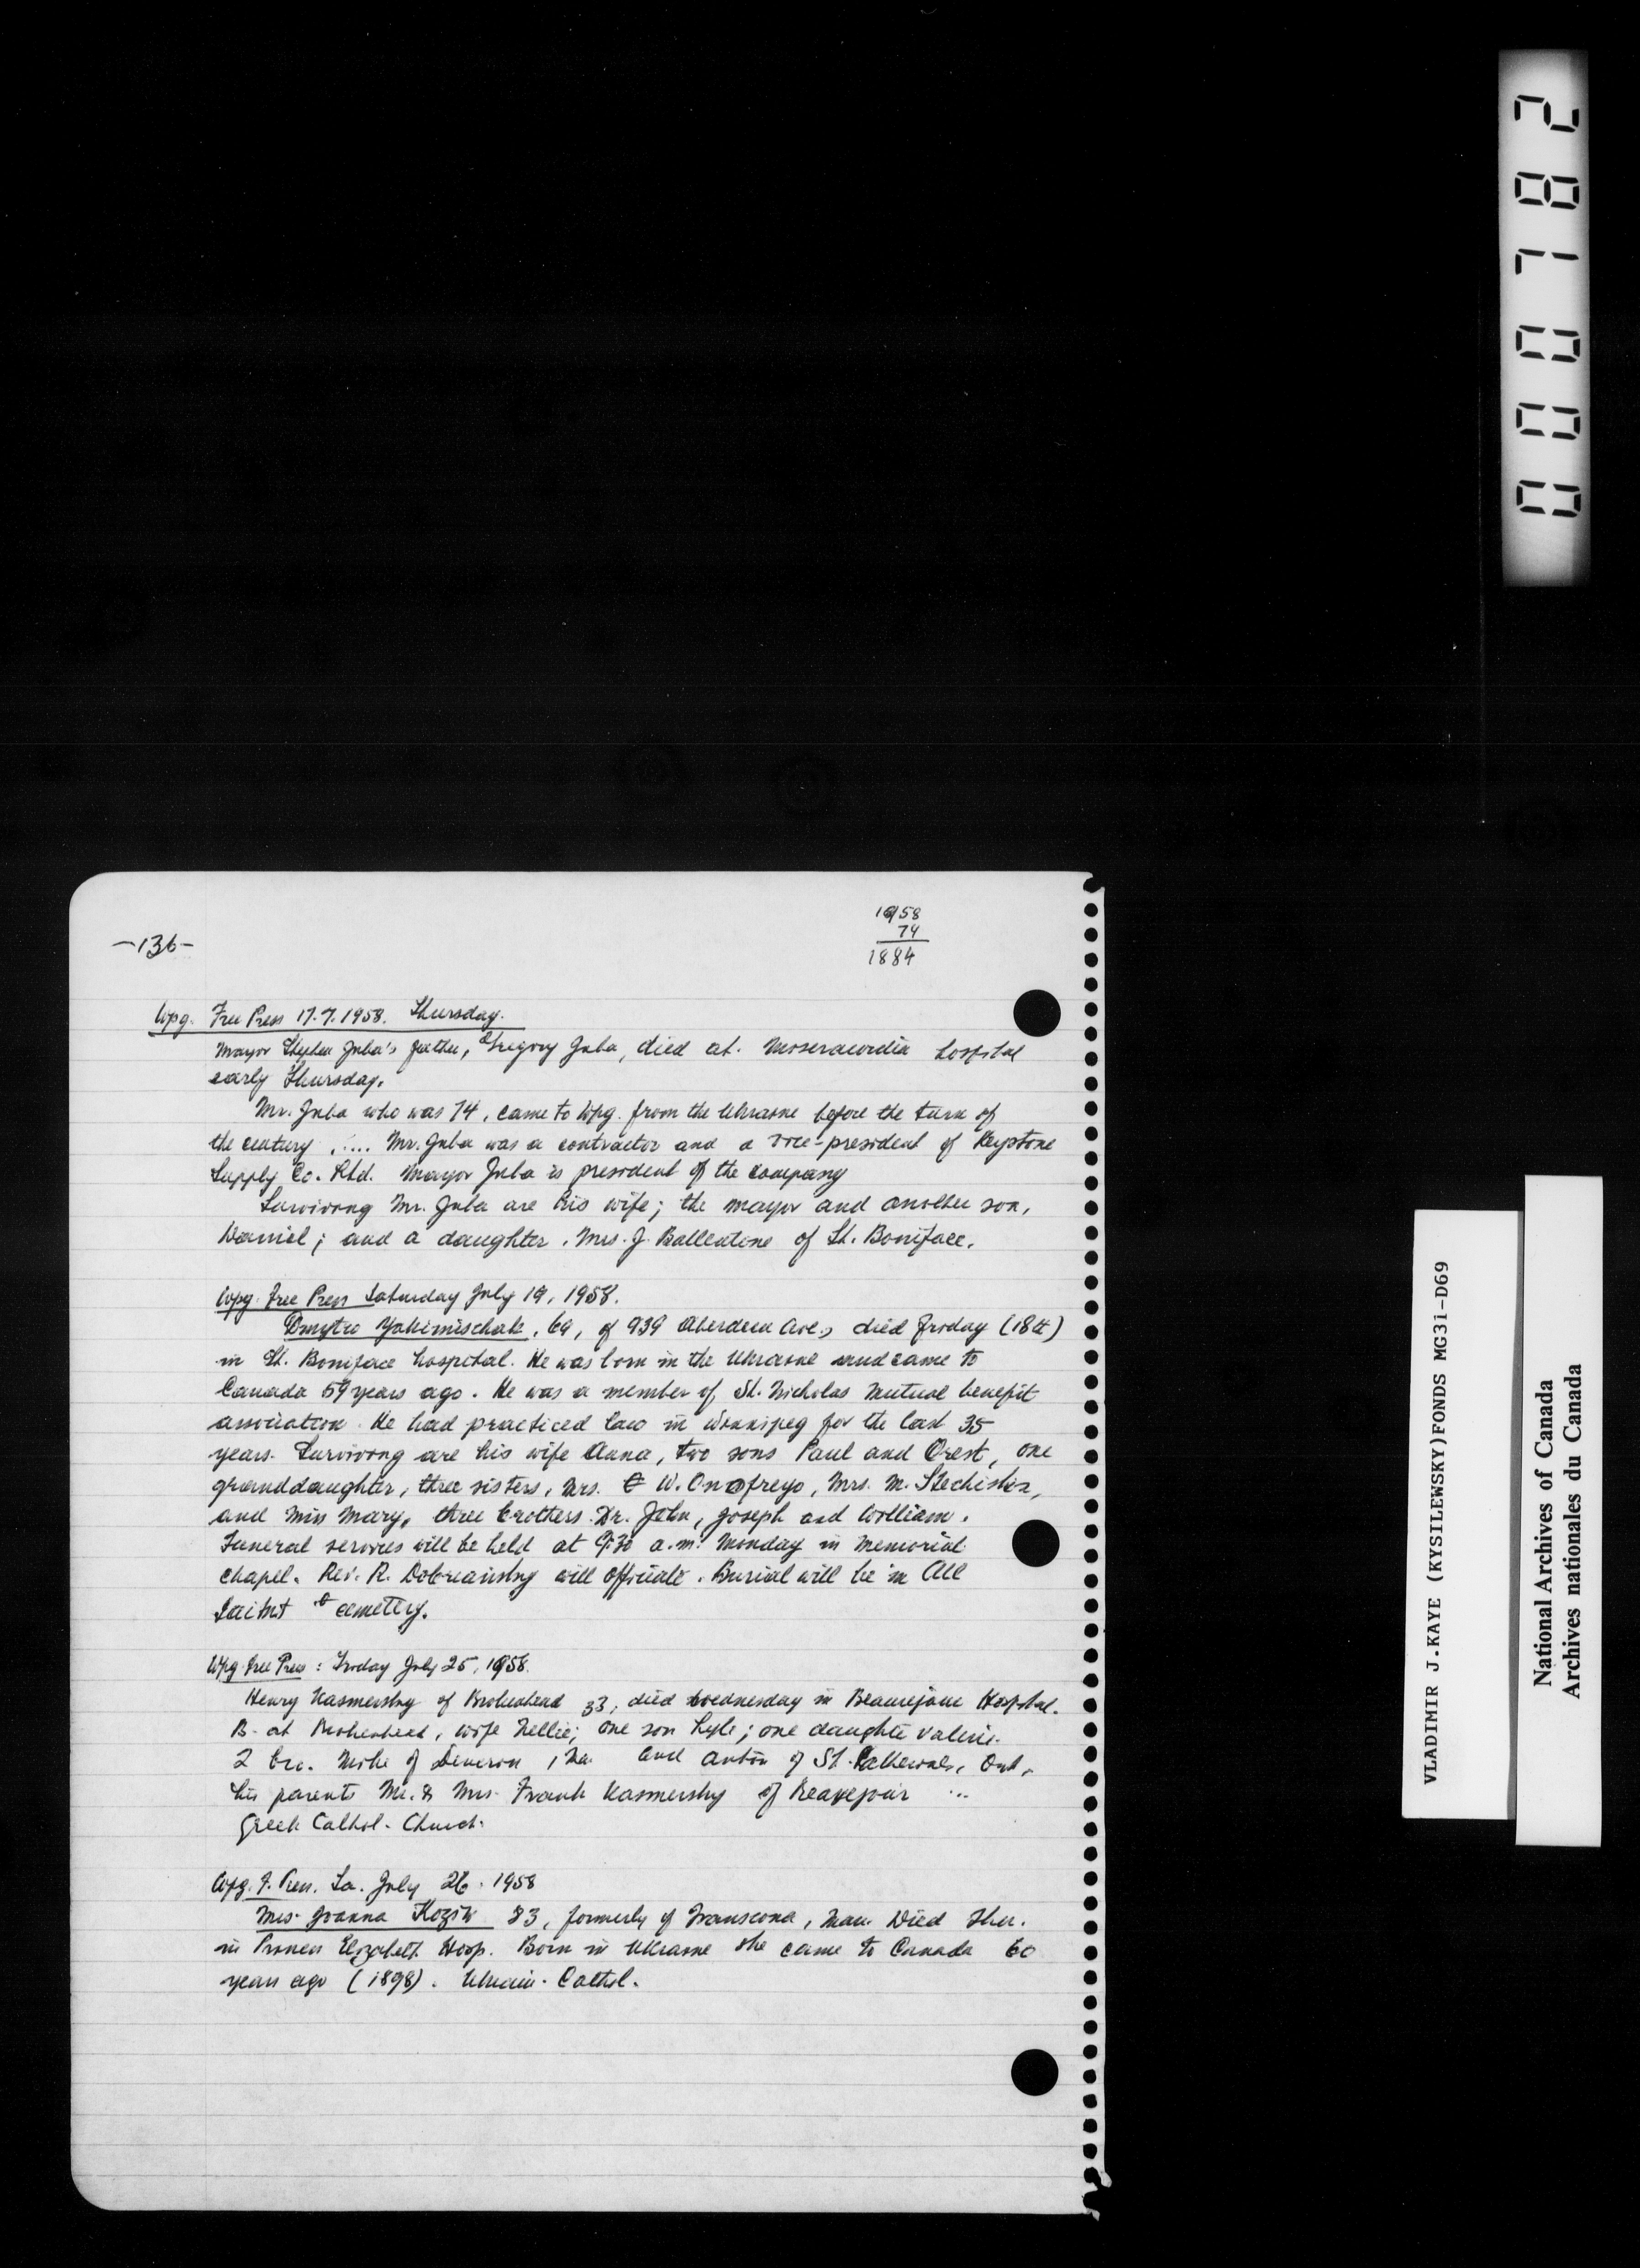 -136-
1958
74
1884
Wpg. Free Press 17.7.1958. Thursday.
Mayor Stephen Juba's father, Gregory Juba, died at. Miseracordia hospital
early Thursday.
Mr. Juba who was 74, came to Wpg. from the Ukraine before the turn of
the century ..... Mr. Juba was a contractor and a vice-president of Keystone
Supply Co. Ltd. Mayor Juba is president of the company
Surviving Mr. Juba are his wife; the mayor and another son,
Daniel; and a daughter. Mrs. J. Ballentine of St. Boniface.
Wpg. Free Press Saturday July 19, 1958.
Dmytro Yakimischak, 69, of 939 Aberdeen Ave., died Friday (18th)
in St. Boniface hospital. He was born in the Ukraine and came to
Canada 59 years ago. He was a member of St. Nicholas Mutual benefit
association. He had practiced law in Winnipeg for the last 35
years. Surviving are his wife Anna, two sons Paul and Orest, one
granddaughter, three sisters, Mrs. W. Onofreyo, Mrs. M. Stechishin,
and Miss Mary, three brothers. Dr. John, Joseph and William.
Funeral services will be held at 9.30 a.m. Monday in Memorial
chapel. Rev. R. Dobriansky will officiate. Burial will be in All
Saint cemetery.
Wpg. Free Press: Friday July 25, 1958.
Henry Kasmersky of Brokenhead 33, died Wednesday in Beausejour Hospital.
B. at Brokenhead, wife Nellie; one son Lyle; one daughter Valerie.
2 bro. Mike of and Anton of St. Catherines, Ont.
his parents Mr. & Mrs. Frank Kasmersky of Beausejour ...
Greek Cathol. Church.
Wpg. F. Press. Sa. July 26. 1958
Mrs. Joanna Koziw 83, formerly of Transcona, Man. Died Thu.
in Princess Elizabeth Hosp. Born in Ukraine she came to Canada 60
years ago (1898). Ukrain. Cathol.
000782
VLADIMIR J.KAYE (KYSILEWSKY)FONDS MG31-D69
National Archives of Canada
Archives nationales du Canada